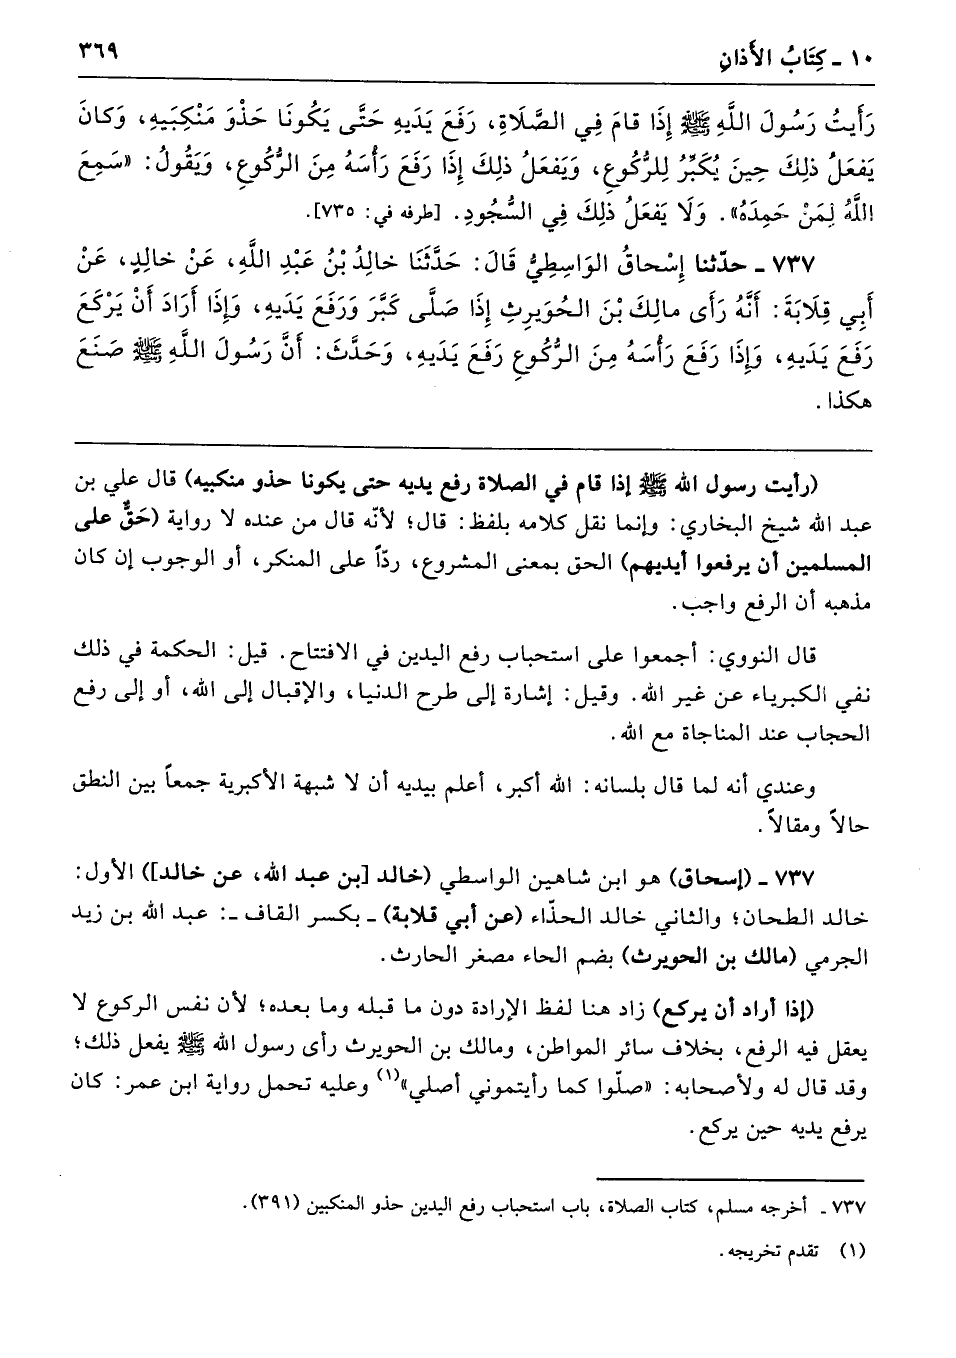 ١٠ ـ كِتَابُ الأَذانِ ٣٦٩
رَأَيتُ رَسُولَ اللَّهِ ﷺ إِذَا قامَ فِي الصَّلَاةِ، رَفَعَ يَدَيهِ حَتَّى يَكُونَا حَذْوَ مَنْكِبَيهِ، وَكانَ
يَفعَلُ ذلِكَ حِينَ يُكَبِّرُ لِلرُّكُوعِ، وَيَفعَلُ ذلِكَ إِذَا رَفَعَ رَأْسَهُ مِنَ الرُّكُوعِ، وَيَقُولُ: «سَمِعَ
اللَّهُ لِمَنْ حَمِدَهُ». وَلَا يَفعَلُ ذلِكَ فِي السُّجُودِ. [طرفه في: ٧٣٥].
٧٣٧ ـ حدّثنا إِسْحاقُ الوَاسِطِيُّ قَالَ: حَدَّثَنَا خالِدُ بْنُ عَبْدِ اللَّهِ، عَنْ خالِدٍ، عَنْ
أَبِي قِلَابَةَ: أَنَّهُ رَأَى مالِكَ بْنَ الحُوَيرِثِ إِذَا صَلَّى كَبَّرَ وَرَفَعَ يَدَيهِ، وَإِذَا أَرَادَ أَنْ يَرْكَعَ
رَفَعَ يَدَيهِ، وَإِذَا رَفَعَ رَأْسَهُ مِنَ الرُّكُوعِ رَفَعَ يَدَيهِ، وَحَدَّثَ: أَنَّ رَسُولَ اللَّهِ ﷺ صَنَعَ
هكذا.
(رأيت رسول الله ﷺ إذا قام في الصلاة رفع يديه حتى يكونا حذو منكبيه) قال علي بن
عبد الله شيخ البخاري: وإنما نقل كلامه بلفظ: قال؛ لأنّه قال من عنده لا رواية (حَقٌّ على
المسلمين أن يرفعوا أيديهم) الحق بمعنى المشروع، ردّاً على المنكر، أو الوجوب إن كان
مذهبه أن الرفع واجب.
قال النووي: أجمعوا على استحباب رفع اليدين في الافتتاح. قيل: الحكمة في ذلك
نفي الكبرياء عن غير الله. وقيل: إشارة إلى طرح الدنيا، والإقبال إلى الله، أو إلى رفع
الحجاب عند المناجاة مع الله.
وعندي أنه لما قال بلسانه: الله أكبر، أعلم بيديه أن لا شبهة الأكبرية جمعاً بين النطق
حالاً ومقالاً.
٧٣٧ ـ (إسحاق) هو ابن شاهين الواسطي (خالد [بن عبد الله، عن خالد]) الأول:
خالد الطحان؛ والثاني خالد الحذّاء (عن أبي قلابة) ـ بكسر القاف ـ: عبد الله بن زيد
الجرمي (مالك بن الحويرث) بضم الحاء مصغر الحارث.
(إذا أراد أن يركع) زاد هنا لفظ الإرادة دون ما قبله وما بعده؛ لأن نفس الركوع لا
يعقل فيه الرفع، بخلاف سائر المواطن، ومالك بن الحويرث رأى رسول الله ﷺ يفعل ذلك؛
وقد قال له ولأصحابه: «صلّوا كما رأيتموني أصلي»(١) وعليه تحمل رواية ابن عمر: كان
يرفع يديه حين يركع.
٧٣٧ ـ أخرجه مسلم، كتاب الصلاة، باب استحباب رفع اليدين حذو المنكبين (٣٩١).
(١) تقدم تخريجه.